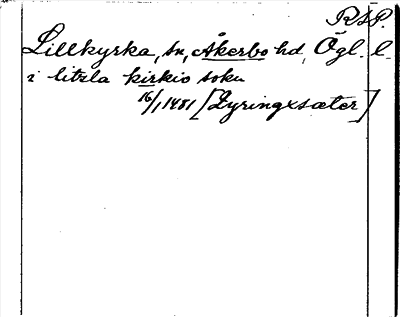 RAP.
Lillkyrka, sn, Åkerbo hd, Ögl. l.
i litzla kirkio sokn
16/1 1481 [Lyringxsæter]